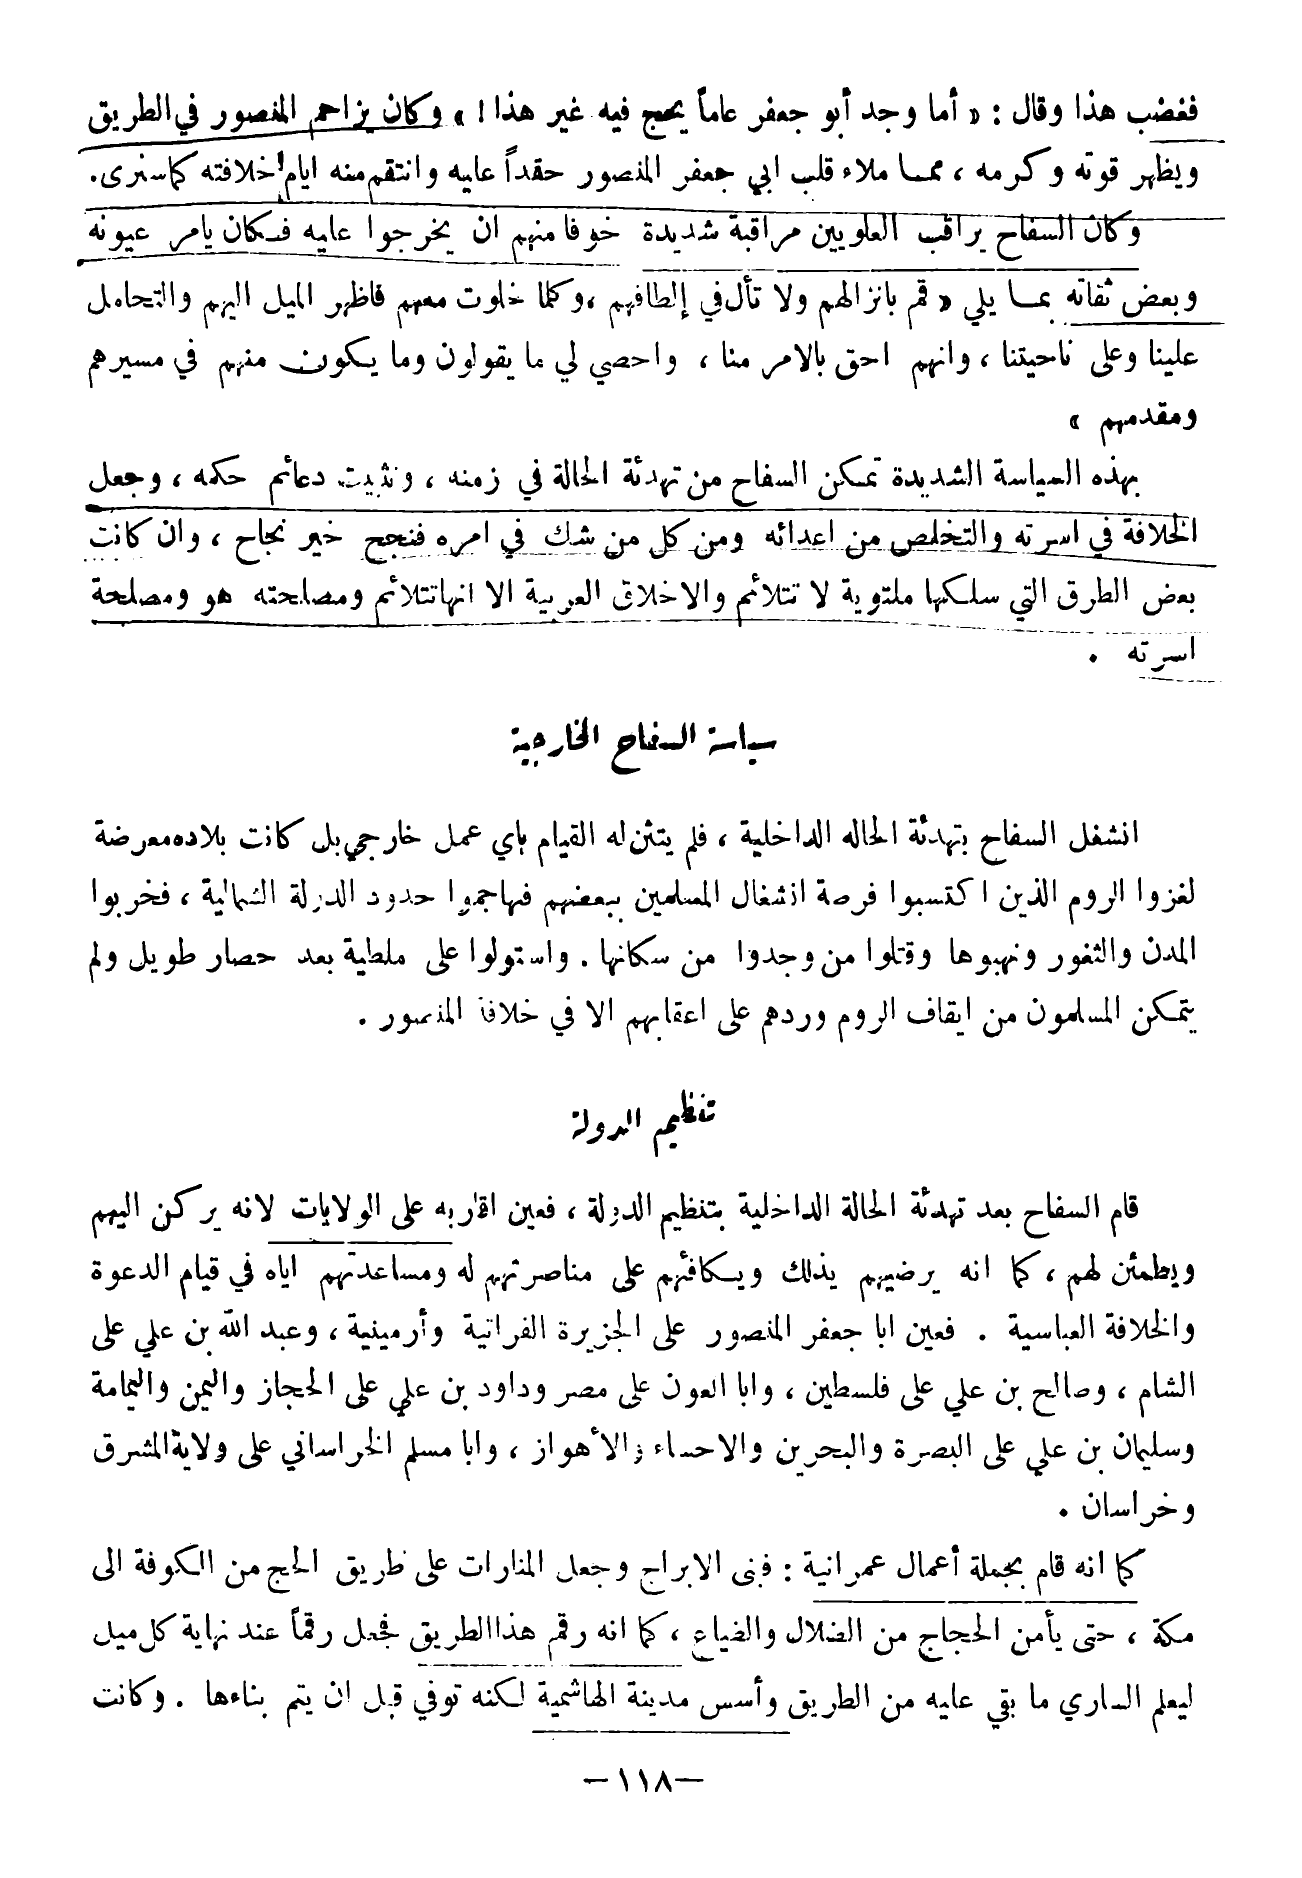 فغضب هذا وقال : « أما وجد أبو جعفر عاماً يحج فيه غير هذا ! » وكان يزاحم المنصور في الطريق
ويظهر قوته وكرمه ، ممـا ملاء قلب ابي جعفر المنصور حقداً عليه وانتقم منه ايام خلافته كما سنرى .
وكان السفاح يراقب العلويين مراقبة شديدة خوفا منهم ان يخرجوا عليه فـكان يامر عيونه
وبعض ثقاته بمـا يلي « قم بانزالهم ولا تأل في إلطافهم ، وكلما خلوت معهم فاظهر الميل اليهم والتحامل
علينا وعلى ناحيتنا ، وانهم احق بالامر منا ، واحصي لي ما يقولون وما يـكون منهم في مسيرهم
ومقدمهم »
بهذه السياسة الشديدة تمـكن السفاح من تهدئة الحالة في زمنه ، وتثبيت دعائم حكمه ، وجعل
الخلافة في اسرته والتخلص من اعدائه ومن كل من شك في امره فنجح خير نجاح ، وان كانت
بعض الطرق التي سلـكها ملتوية لا تتلائم والاخلاق العربية الا انها تتلائم ومصلحته هو ومصلحة
اسرته .
سياسة السفاح الخارجية
انشغل السفاح بتهدئة الحاله الداخلية ، فلم يتثن له القيام باي عمل خارجي بل كانت بلاده معرضة
لغزوا الروم الذين اكتسبوا فرصة انشغال المسلمين ببعضهم فهاجموا حدود الدولة الشمالية ، فخربوا
المدن والثغور ونهبوها وقتلوا من وجدوا من سكانها . واستولوا على ملطية بعد حصار طويل ولم
يتمـكن المسلمون من ايقاف الروم وردهم على اعقابهم الا في خلافة المنصور .
تنظيم الدولة
قام السفاح بعد تهدئة الحالة الداخلية بتنظيم الدولة ، فعين اقاربه على الولايات لانه يركن اليهم
ويطمئن لهم ، كما انه يرضيهم بذلك ويـكافئهم على مناصرتهم له ومساعدتهم اياه في قيام الدعوة
والخلافة العباسية . فعين ابا جعفر المنصور على الجزيرة الفراتية وأرمينية ، وعبد الله بن علي على
الشام ، وصالح بن علي على فلسطين ، وابا العون على مصر وداود بن علي على الحجاز واليمن واليمامة
وسليمان بن علي على البصرة والبحرين والاحساء والأهواز ، وابا مسلم الخراساني على ولاية المشرق
وخراسان .
كما انه قام بجملة أعمال عمرانية : فبنى الابراج وجعل المنارات على طريق الحج من الـكوفة الى
مكة ، حتى يأمن الحجاج من الضلال والضياع ، كما انه رقم هذا الطريق فجعل رقماً عند نهاية كل ميل
ليعلم الساري ما بقي عليه من الطريق وأسس مدينة الهاشمية لـكنه توفي قبل ان يتم بناءها . وكانت
—١١٨—